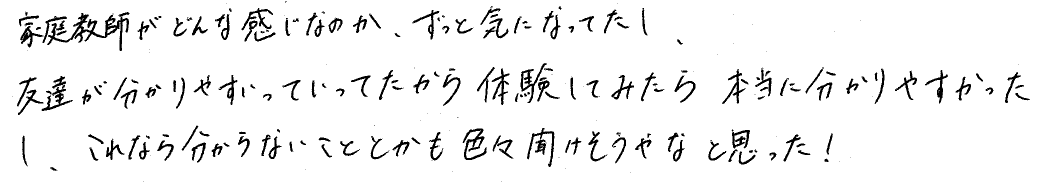 家庭教師がどんな感じなのか、ずっと気になってたし、
友達が分かりやすいっていってたから体験してみたら本当に分かりやすかった
し、これなら分からないこととかも色々聞けそうやなと思った!